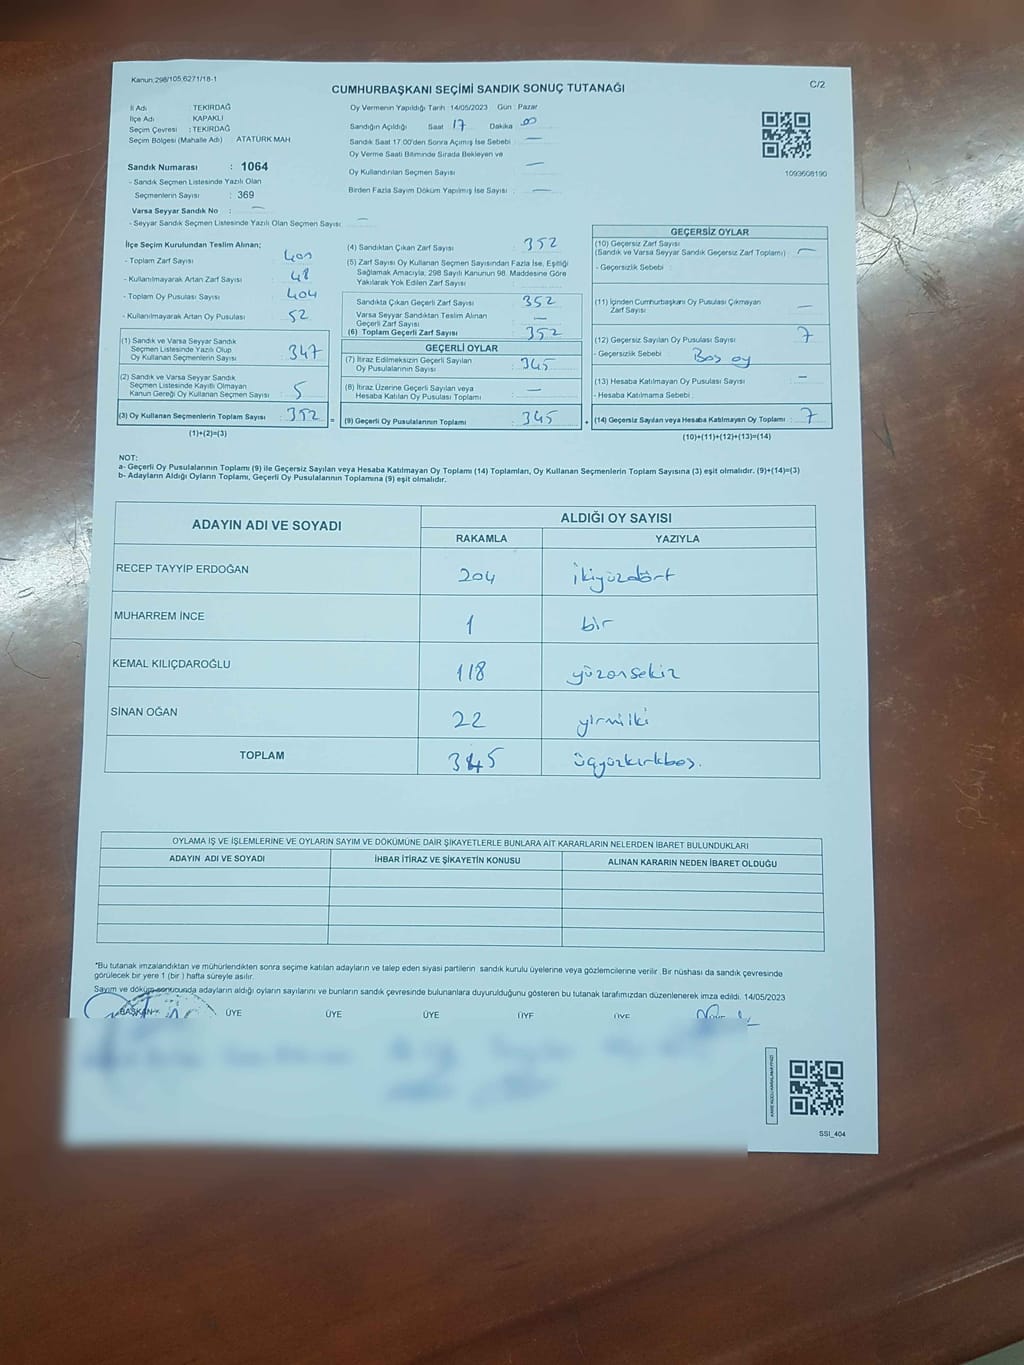 Kanun:298/105,6271/18-1
C/2
CUMHURBAŞKANI SEÇİMİ SANDIK SONUÇ TUTANAĞI
İl Adı : TEKİRDAĞ
İlçe Adı : KAPAKLI
Seçim Çevresi : TEKİRDAĞ
Seçim Bölgesi (Mahalle Adı) : ATATÜRK MAH
Sandık Numarası : 1064
- Sandık Seçmen Listesinde Yazılı Olan
Seçmenlerin Sayısı : 369
Varsa Seyyar Sandık No : —
- Seyyar Sandık Seçmen Listesinde Yazılı Olan Seçmen Sayısı : —
Oy Vermenin Yapıldığı Tarih : 14/05/2023 Gün : Pazar
Sandığın Açıldığı Saat 17 Dakika 00
Sandık Saat 17:00'den Sonra Açımış İse Sebebi : —
Oy Verme Saati Bitiminde Sırada Bekleyen ve
Oy Kullandırılan Seçmen Sayısı : —
Birden Fazla Sayım Döküm Yapılmış İse Sayısı : —
1093608190
İlçe Seçim Kurulundan Teslim Alınan;
- Toplam Zarf Sayısı : 400
- Kullanılmayarak Artan Zarf Sayısı : 48
- Toplam Oy Pusulası Sayısı : 404
- Kullanılmayarak Artan Oy Pusulası : 52
(1) Sandık ve Varsa Seyyar Sandık
Seçmen Listesinde Yazılı Olup
Oy Kullanan Seçmenlerin Sayısı : 347
(2) Sandık ve Varsa Seyyar Sandık
Seçmen Listesinde Kayıtlı Olmayan
Kanun Gereği Oy Kullanan Seçmen Sayısı : 5
(3) Oy Kullanan Seçmenlerin Toplam Sayısı : 352
(1)+(2)=(3)
=
(4) Sandıktan Çıkan Zarf Sayısı : 352
(5) Zarf Sayısı Oy Kullanan Seçmen Sayısından Fazla İse, Eşitliği
Sağlamak Amacıyla; 298 Sayılı Kanunun 98. Maddesine Göre
Yakılarak Yok Edilen Zarf Sayısı :
Sandıkta Çıkan Geçerli Zarf Sayısı : 352
Varsa Seyyar Sandıktan Teslim Alınan
Geçerli Zarf Sayısı : —
(6) Toplam Geçerli Zarf Sayısı : 352
GEÇERLİ OYLAR
(7) İtiraz Edilmeksizin Geçerli Sayılan
Oy Pusulalarının Sayısı : 345
(8) İtiraz Üzerine Geçerli Sayılan veya
Hesaba Katılan Oy Pusulası Toplamı : —
(9) Geçerli Oy Pusulalarının Toplamı : 345
+
GEÇERSİZ OYLAR
(10) Geçersiz Zarf Sayısı
(Sandık ve Varsa Seyyar Sandık Geçersiz Zarf Toplamı) : —
- Geçersizlik Sebebi :
(11) İçinden Cumhurbaşkanı Oy Pusulası Çıkmayan
Zarf Sayısı : —
(12) Geçersiz Sayılan Oy Pusulası Sayısı : 7
- Geçersizlik Sebebi : Boş oy
(13) Hesaba Katılmayan Oy Pusulası Sayısı : —
- Hesaba Katılmama Sebebi :
(14) Geçersiz Sayılan veya Hesaba Katılmayan Oy Toplamı : 7
(10)+(11)+(12)+(13)=(14)
NOT:
a- Geçerli Oy Pusulalarının Toplamı (9) ile Geçersiz Sayılan veya Hesaba Katılmayan Oy Toplamı (14) Toplamları, Oy Kullanan Seçmenlerin Toplam Sayısına (3) eşit olmalıdır. (9)+(14)=(3)
b- Adayların Aldığı Oyların Toplamı, Geçerli Oy Pusulalarının Toplamına (9) eşit olmalıdır.
ADAYIN ADI VE SOYADI
ALDIĞI OY SAYISI
RAKAMLA YAZIYLA
RECEP TAYYİP ERDOĞAN 204 ikiyüzdört
MUHARREM İNCE 1 bir
KEMAL KILIÇDAROĞLU 118 yüzonsekiz
SİNAN OĞAN 22 yirmiiki
TOPLAM 345 üçyüzkırkbeş.
OYLAMA İŞ VE İŞLEMLERİNE VE OYLARIN SAYIM VE DÖKÜMÜNE DAİR ŞİKAYETLERLE BUNLARA AİT KARARLARIN NELERDEN İBARET BULUNDUKLARI
ADAYIN ADI VE SOYADI İHBAR İTİRAZ VE ŞİKAYETİN KONUSU ALINAN KARARIN NEDEN İBARET OLDUĞU
*Bu tutanak imzalandıktan ve mühürlendikten sonra seçime katılan adayların ve talep eden siyasi partilerin sandık kurulu üyelerine veya gözlemcilerine verilir. Bir nüshası da sandık çevresinde
görülecek bir yere 1 (bir ) hafta süreyle asılır.
Sayım ve döküm sonucunda adayların aldığı oyların sayılarını ve bunların sandık çevresinde bulunanlara duyurulduğunu gösteren bu tutanak tarafımızdan düzenlenerek imza edildi. 14/05/2023
BAŞKAN ÜYE ÜYE ÜYE ÜYE ÜYE
SSI_404